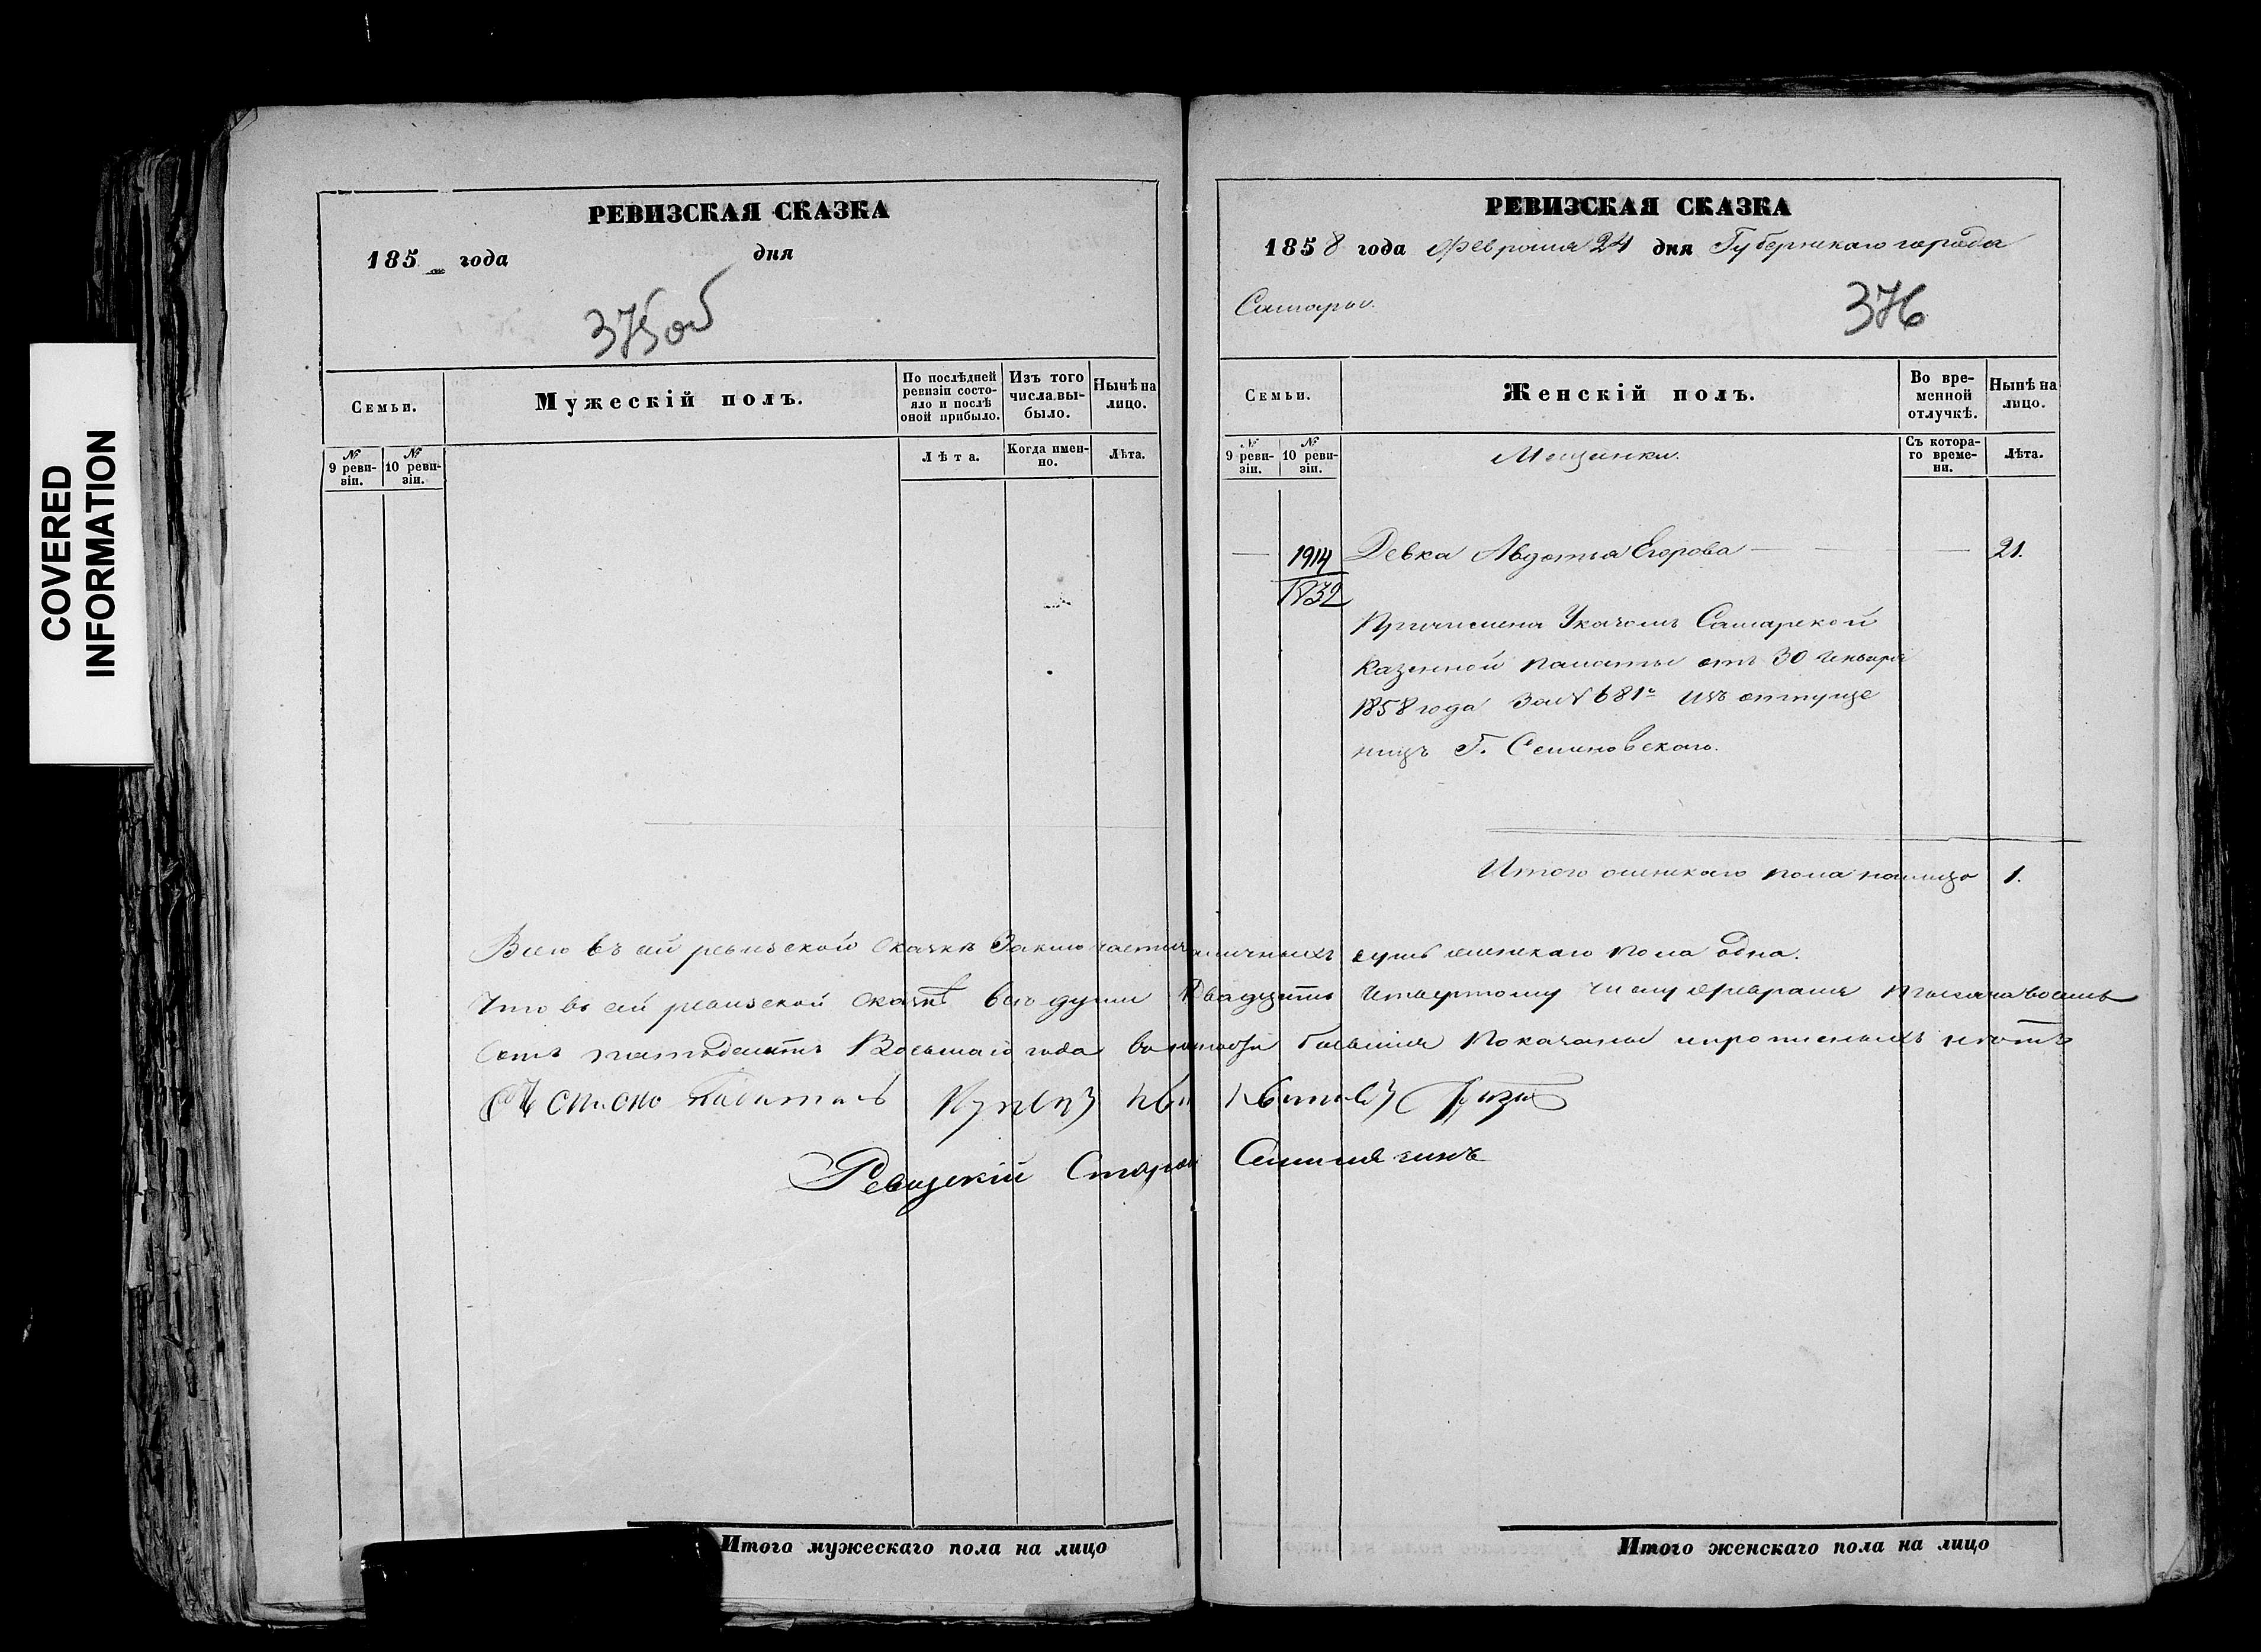 COVERED
INFORMATION
РЕВИЗСКАЯ СКАЗКА
185 года дня
375об
Семьи.
Мужескій полъ.
По послѣдней
ревизіи состо-
яло и послѣ
оной прибыло.
Изъ того
числа вы-
было.
Нынѣ на
лицо.
№
9 реви-
зіи.
№
10 реви-
зіи.
Лѣта.
Когда имен-
но.
Лѣта.
РЕВИЗСКАЯ СКАЗКА
1858 года Февраля 24 дня Губернскаго города
Самары.
376
Семьи.
Женскій полъ.
Во вре-
менной
отлучкѣ.
Нынѣ на
лицо.
№
9 реви-
зіи.
№
10 реви-
зіи.
Мещанки.
Съ котора-
го време-
ни.
Лѣта.
1914 Девка Авдотья Егорова 21.
1732
Причислена Указомъ Самарской
Казенной палаты отъ 30 Генваря
1858 года За № 681м Изъ отпуще
ницъ Г. Семиновскаго.
Итого женскаго пола на лицо 1.
Всего въ сей ревизской сказкѣ Заключается наличныхъ душъ женскаго пола одна.
Что въ сей ревизской сказкѣ все души Двадцать четвертому числу февраля тысяча восемь
сотъ пятьдесятъ Восьмаго года показаны и прописныхъ нѣтъ
Купецъ
Ревизскій Семилячинъ
Итого мужескаго пола на лицо
Итого женскаго пола на лицо